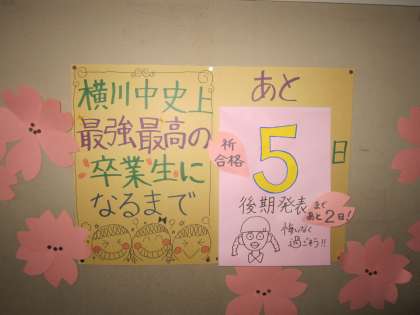 横川中史上
最強最高の
卒業生に
なるまで
あと
5
日
祈
合格
後期発表まで
あと2日!
悔いなく
過ごそう!!